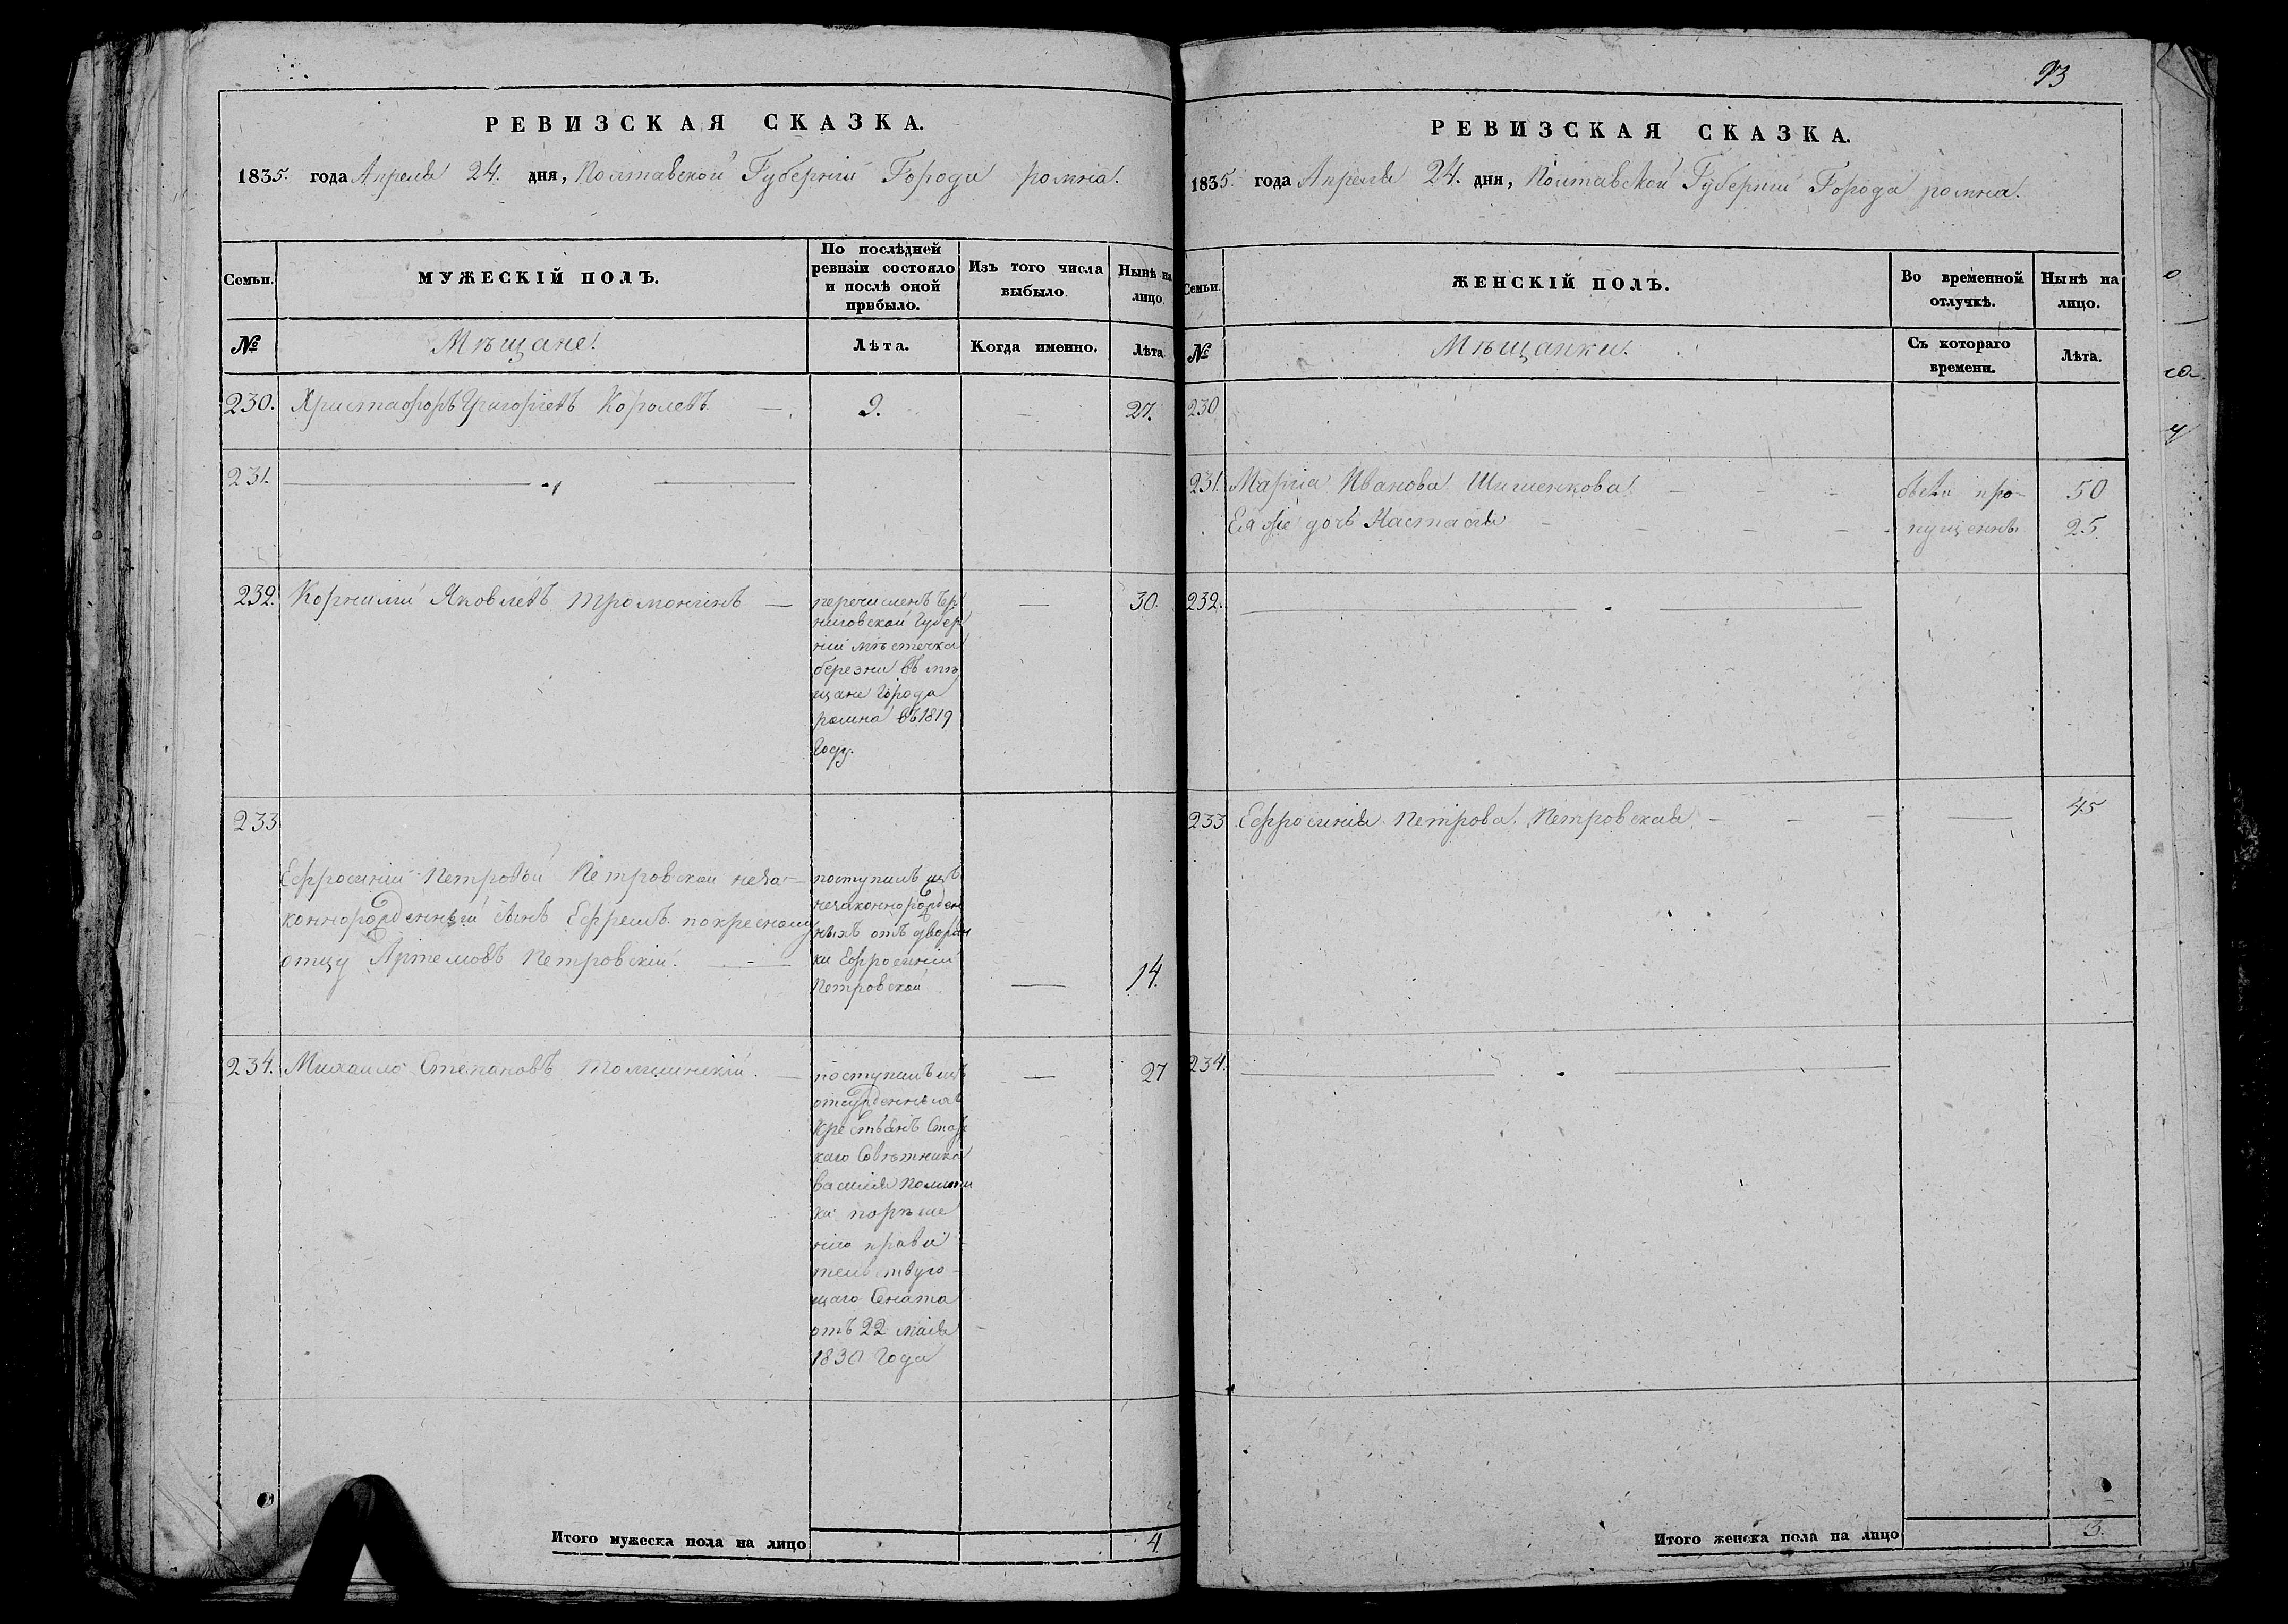 РЕВИЗСКАЯ СКАЗКА.
1835. года Апреля 24. дня, Полтавской Губерніи Города ромна.
Семьи.
МУЖЕСКІЙ ПОЛЪ.
По послѣдней
ревизіи состояло
и послѣ оной
прибыло.
Изъ того числа
выбыло
Нынѣ на
лицо
№
Мѣщане.
Лѣта.
Когда именно.
Лѣта
230. Христафоръ Григорьевъ Королевъ — 9. — 27.
231.
232. Корнилій Яковлевъ Тромонинъ — перечисленъ Чер
— 30.
ниговской Губер
ніи мѣстечка
березни въ мѣ
щане Города
ромна въ 1819
Году.
233
Ефросиніи Петровой Петровской неза-
коннорожденный сынъ Ефремъ по кресному
отцу Артемовъ Петровскій. —
поступилъ изъ
незаконнорожден
ныхъ отъ дворян
ки Ефросиніи
Петровской
— 14.
234. Михаило Степановъ Толчинскій. — поступилъ изъ
— 27
отсужденныхъ
Крестьянъ Стат
каго Совѣтника
василія
ки порѣше
нію прави
тельствую-
щаго Сената
отъ 22 маія
1830 Года
Итого мужеска пола на лицо 4.
93
РЕВИЗСКАЯ СКАЗКА.
1835. года Апреля 24. дня, Полтавской Губерніи Города ромна.
Семьи.
ЖЕНСКІЙ ПОЛЪ.
Во временной
отлучкѣ.
Нынѣ на
лицо.
№
Мѣщанки.
Съ котораго
времени.
Лѣта.
230
231. Марія Иванова Шишенкова. — — — про- 50
Ея же дочъ Настасія — — — — пущенны 25
232.
233 Ефросинія Петрова Петровская — — — — 45
234.
Итого женска пола на лицо 3.